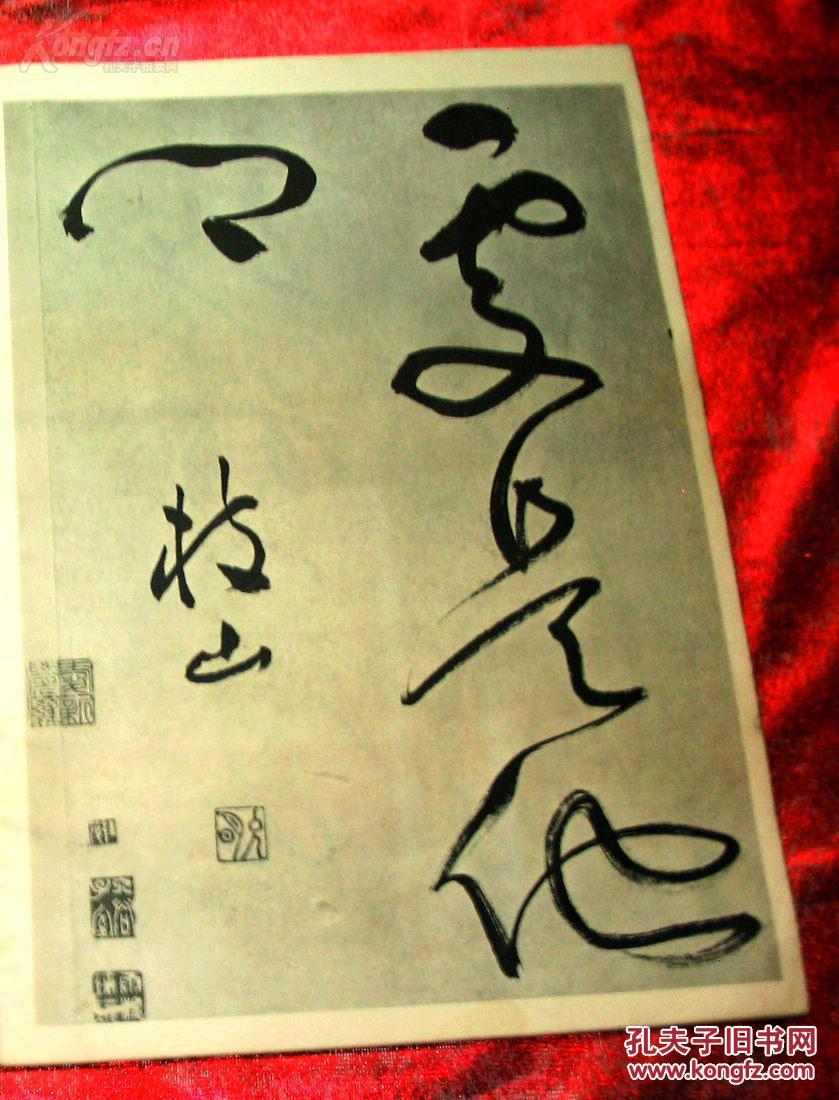 Kongfz.cn
處是他
鄉
枝山
孔夫子旧书网
www.kongfz.com